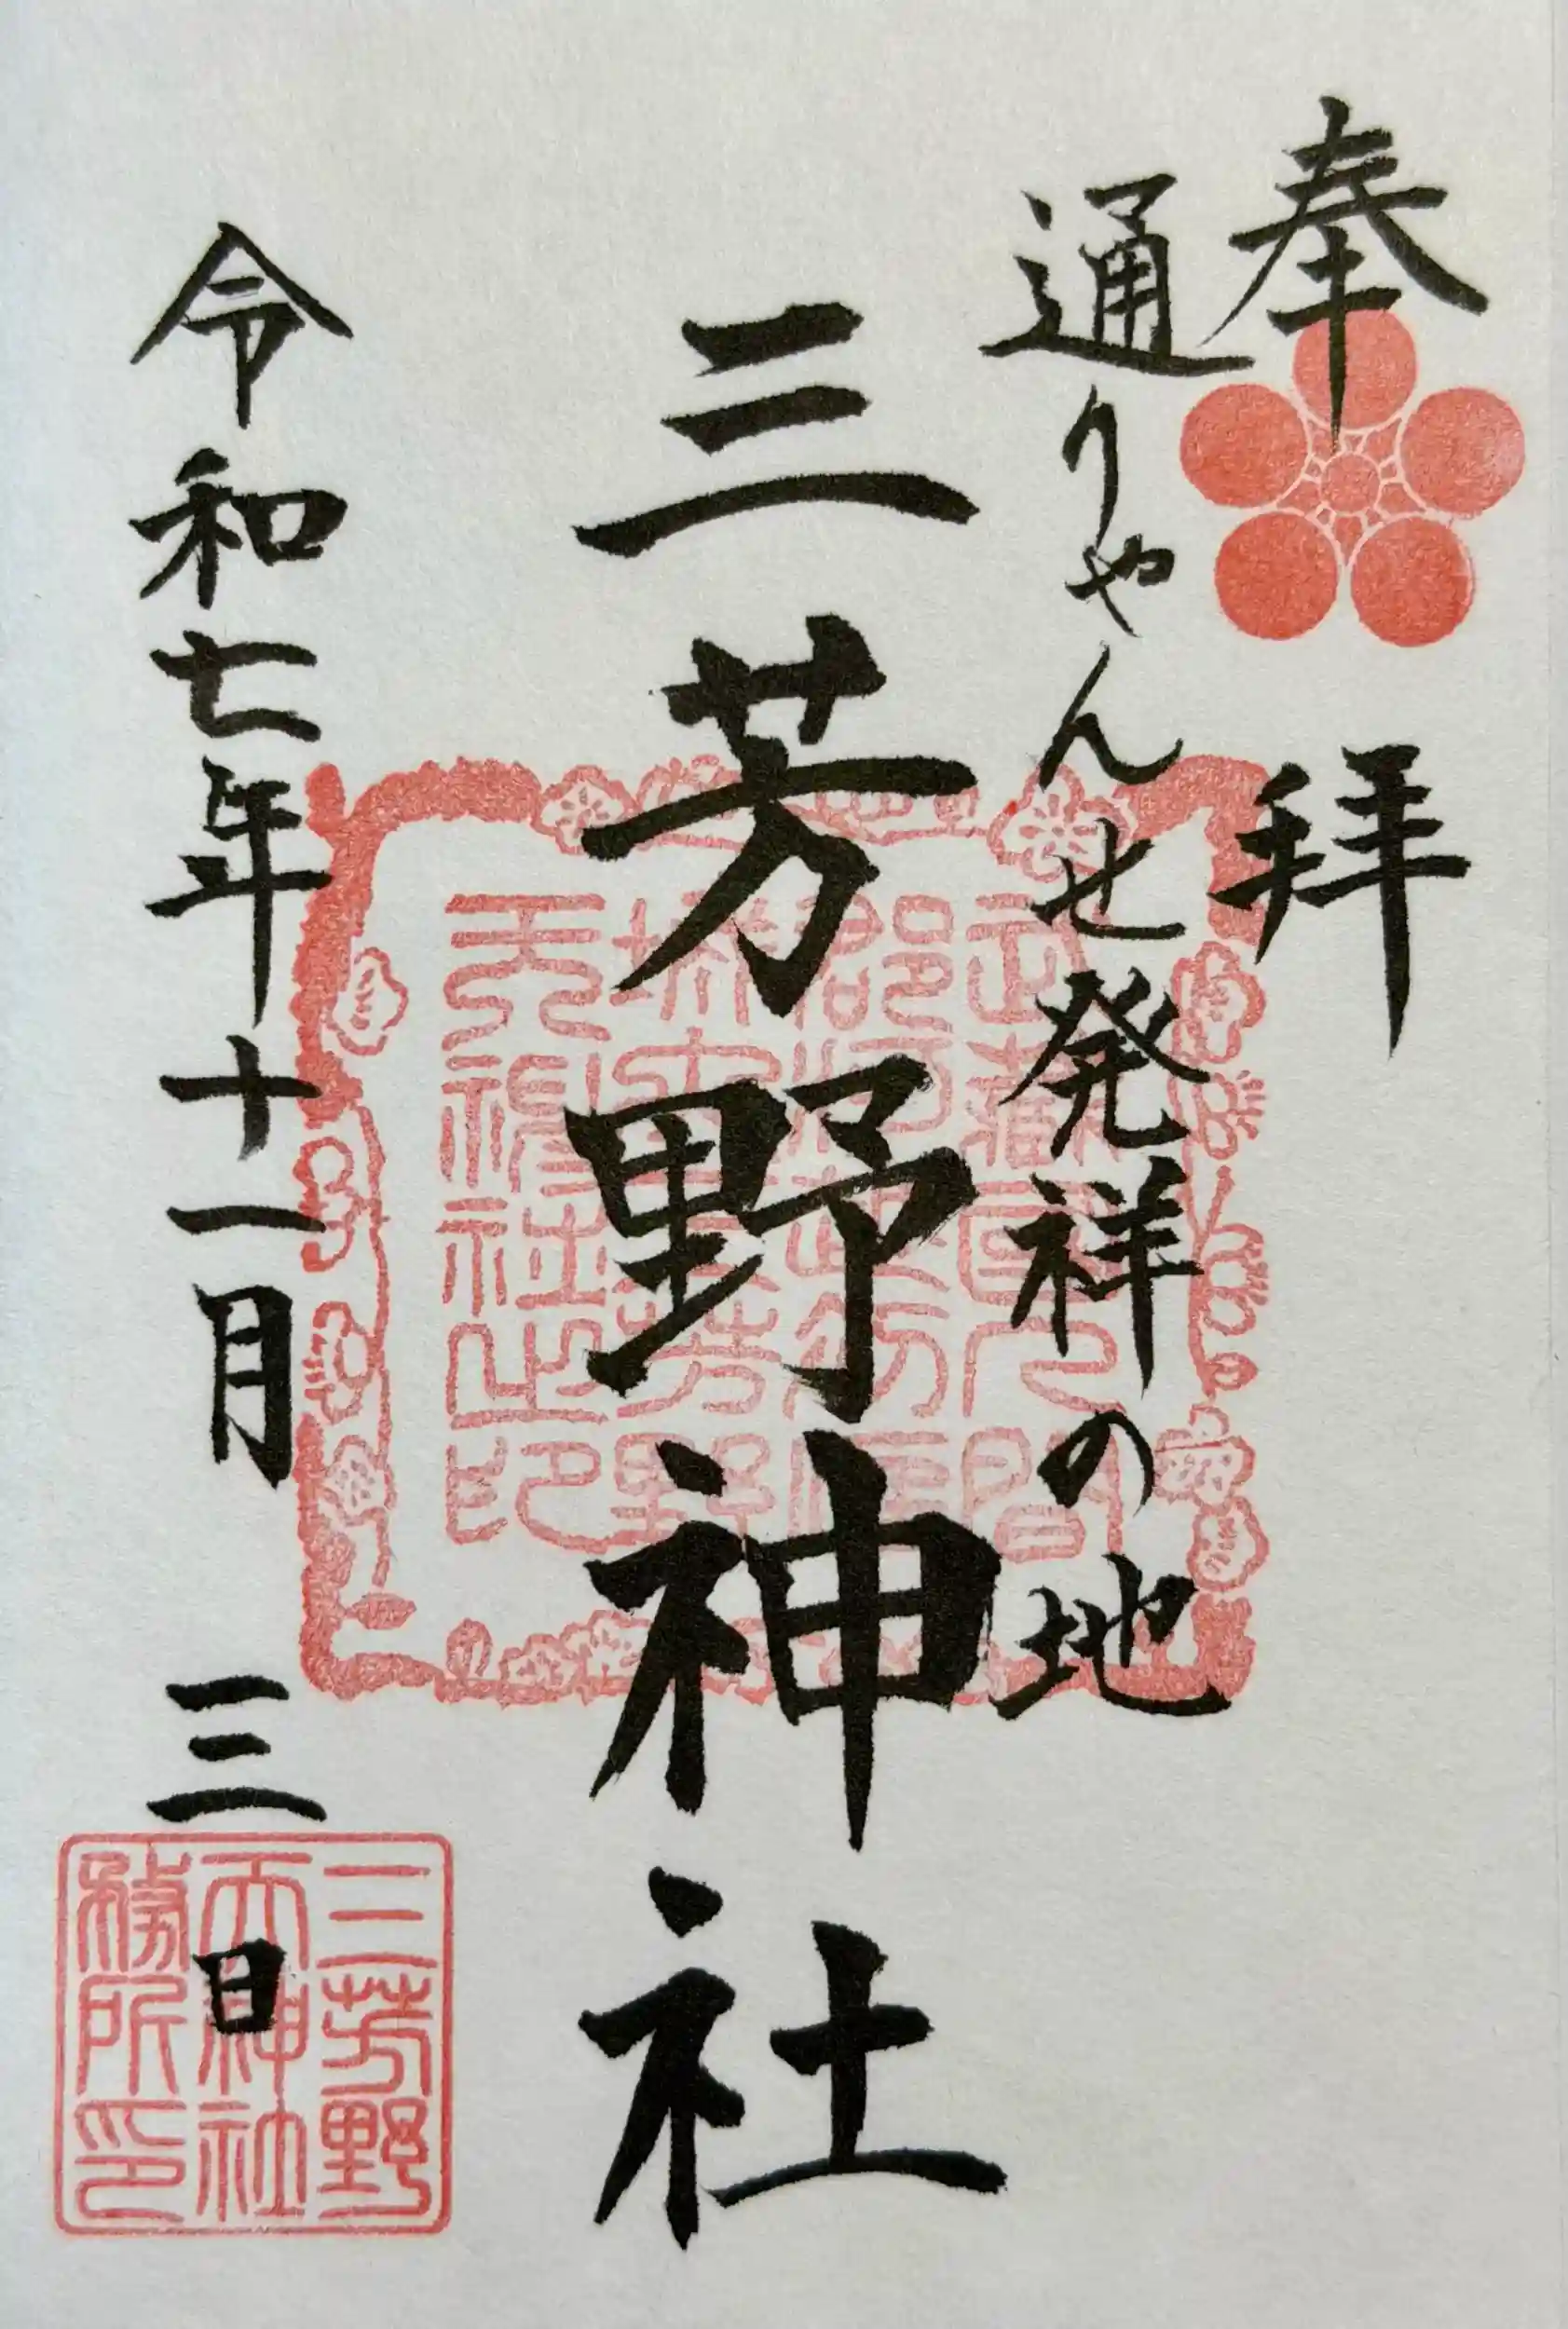 奉拝
通りゃんせ発祥の地
三芳野神社
令和七年十一月三日
三芳野
天神社
務所印